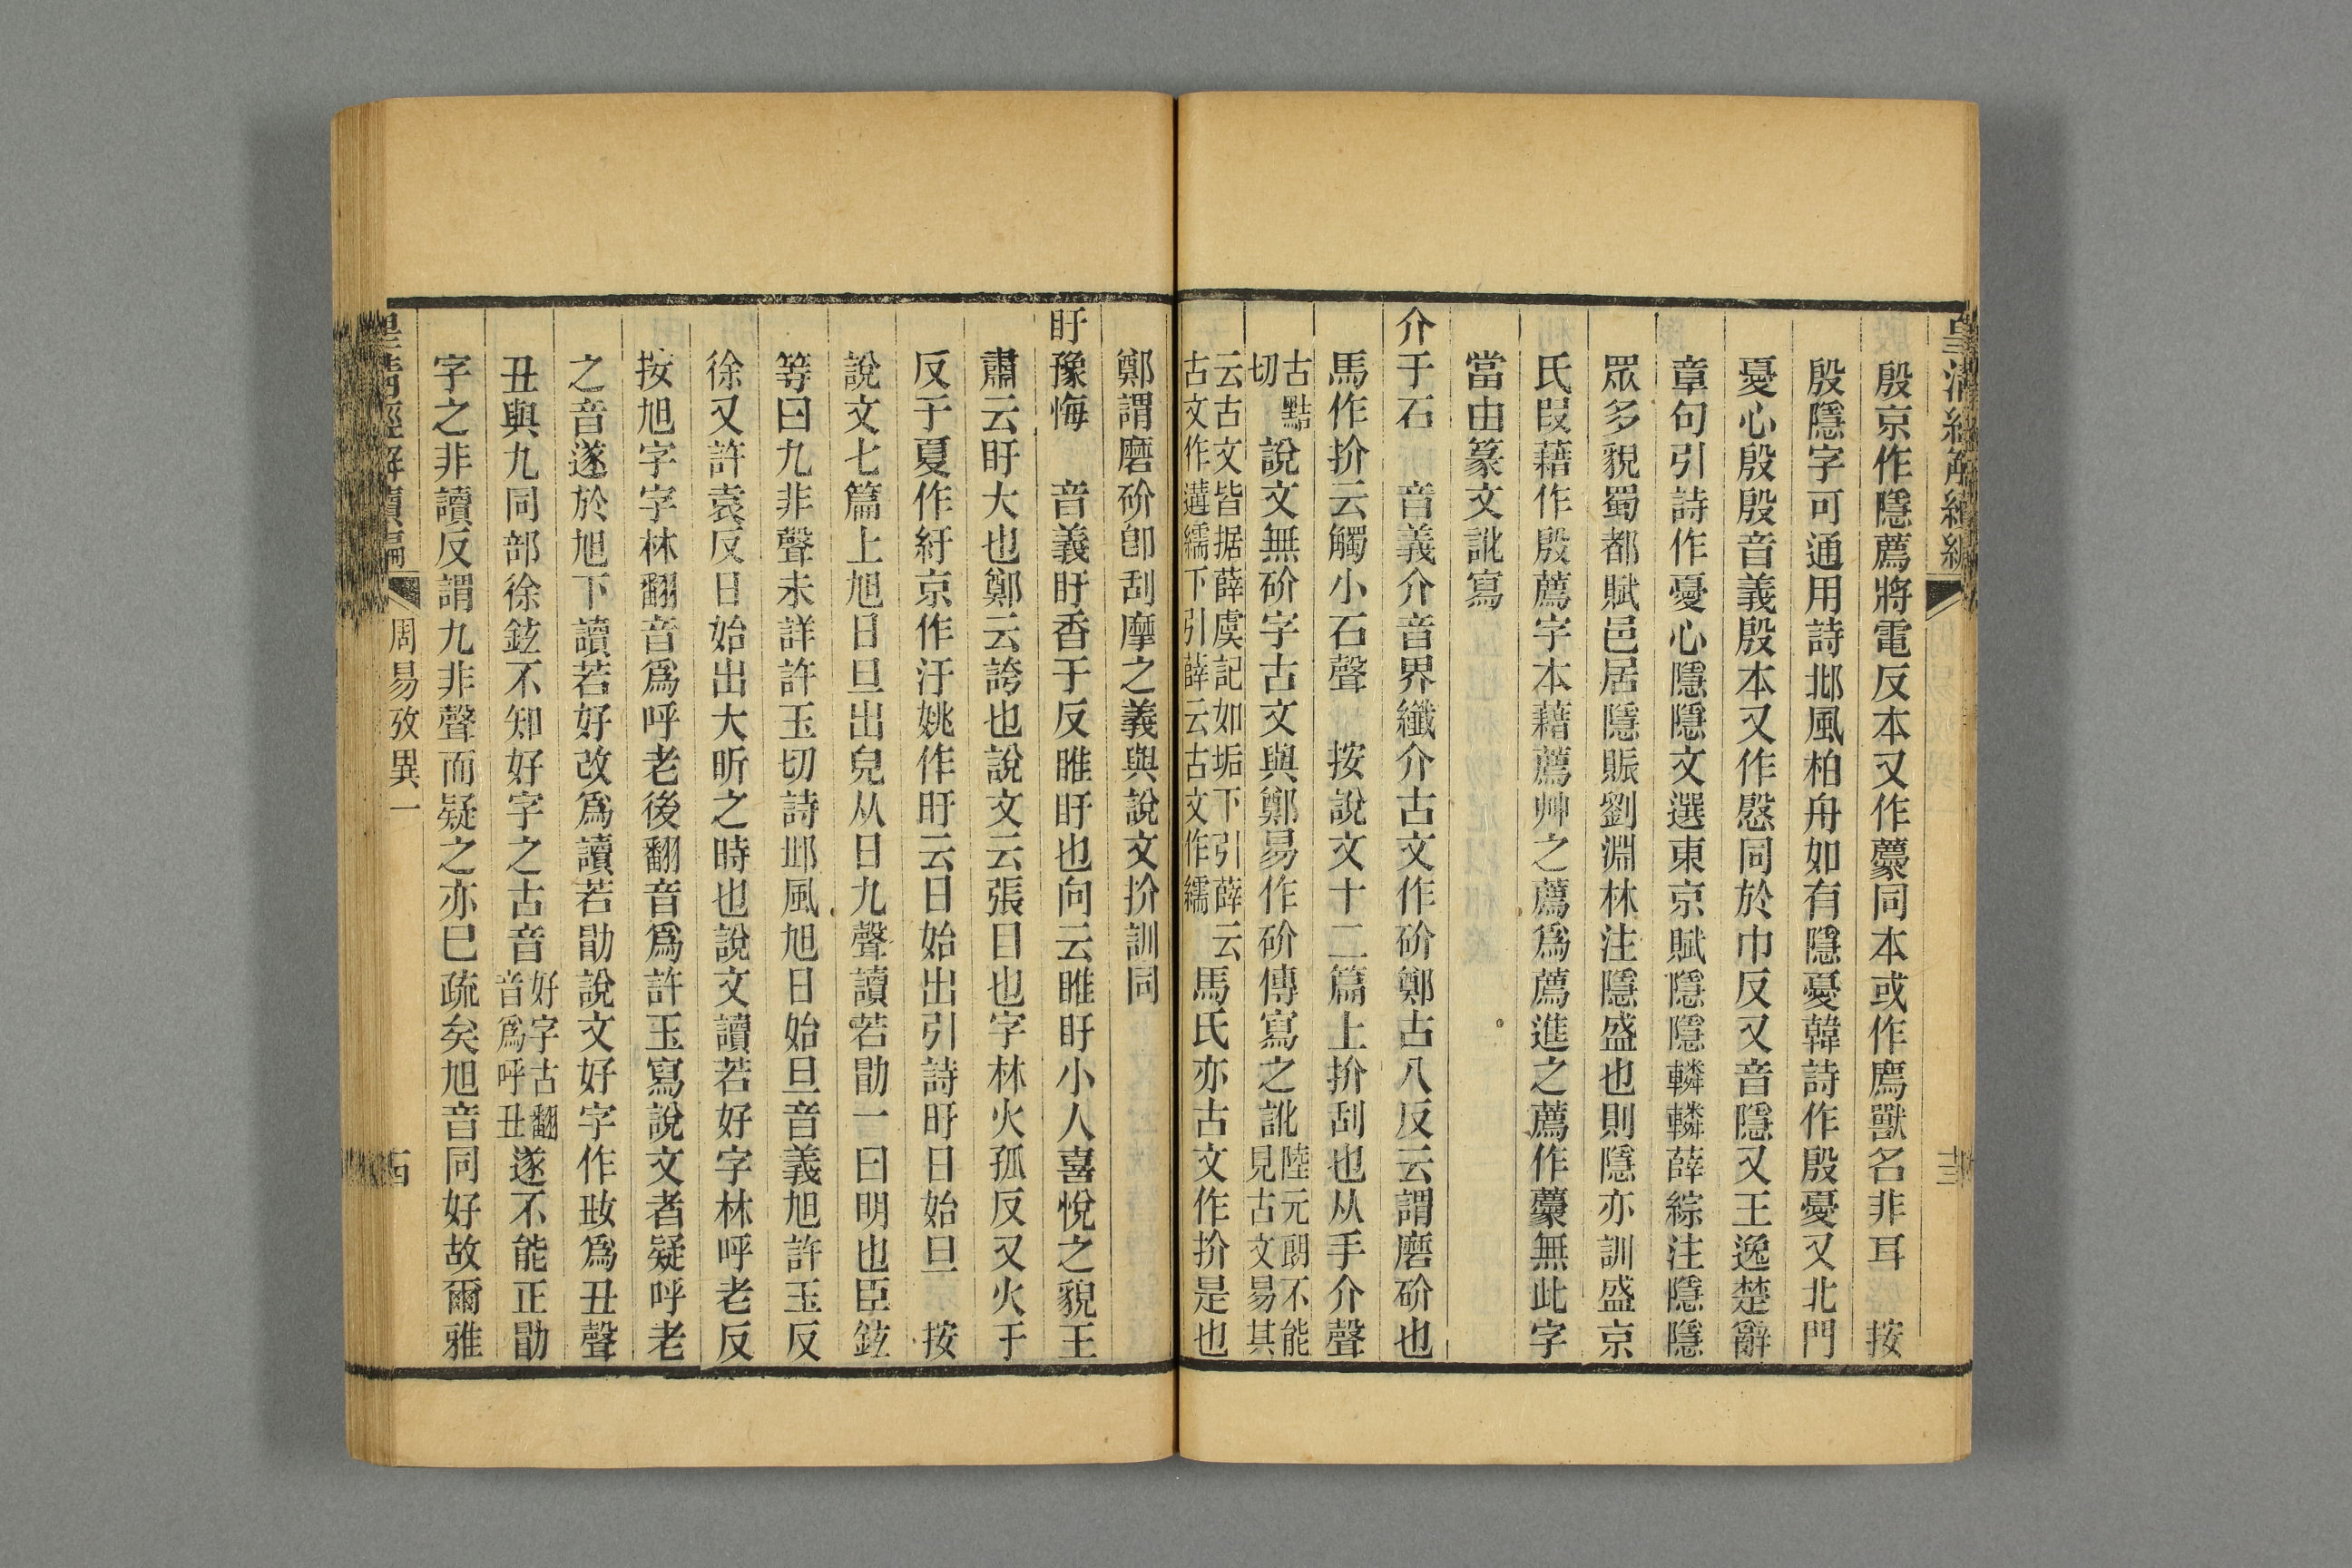 殷京作隱薦將電反本又作䕯同本或作廌獸名非耳　按
殷隱字可通用詩邶風柏舟如有隱憂韓詩作殷憂又北門
憂心殷殷音義殷本又作慇同於巾反又音隱又王逸楚辭
章句引詩作憂心隱隱文選東京賦隱隱轔轔薛綜注隱隱
眾多貌蜀都賦邑居隱賑劉淵林注隱盛也則隱亦訓盛京
氏叚藉作殷薦字本藉薦艸之薦爲薦進之薦作䕯無此字
當由篆文訛寫
介于石　音義介音界纖介古文作砎鄭古八反云謂磨砎也
馬作扴云觸小石聲　按說文十二篇上扴刮也从手介聲
古黠切說文無砎字古文與鄭易作砎傳寫之訛陸元朗不能見古文易其
云古文皆据薛虞記如垢下引薛云古文作遘繻下引薛云古文作繻馬氏亦古文作扴是也
鄭謂磨砎卽刮摩之義與說文扴訓同
盱豫悔　音義盱香于反睢盱也向云睢盱小人喜悅之貌王
肅云盱大也鄭云誇也說文云張目也字林火孤反又火于
反子夏作紆京作汙姚作旴云日始出引詩旴日始旦　按
說文七篇上旭日旦出皃从日九聲讀若勖一曰明也臣鉉
等曰九非聲未詳許玉切詩邶風旭日始旦音義旭許玉反
徐又許袁反日始出大昕之時也說文讀若好字林呼老反
按旭字字林翻音爲呼老後翻音爲許玉寫說文者疑呼老
之音遂於旭下讀若好改爲讀若勖說文好字作㚼爲丑聲
丑與九同部徐鉉不知好字之古音好字古翻音爲呼丑遂不能正勖
字之非讀反謂九非聲而疑之亦巳疏矣旭音同好故爾雅
周易攷異一